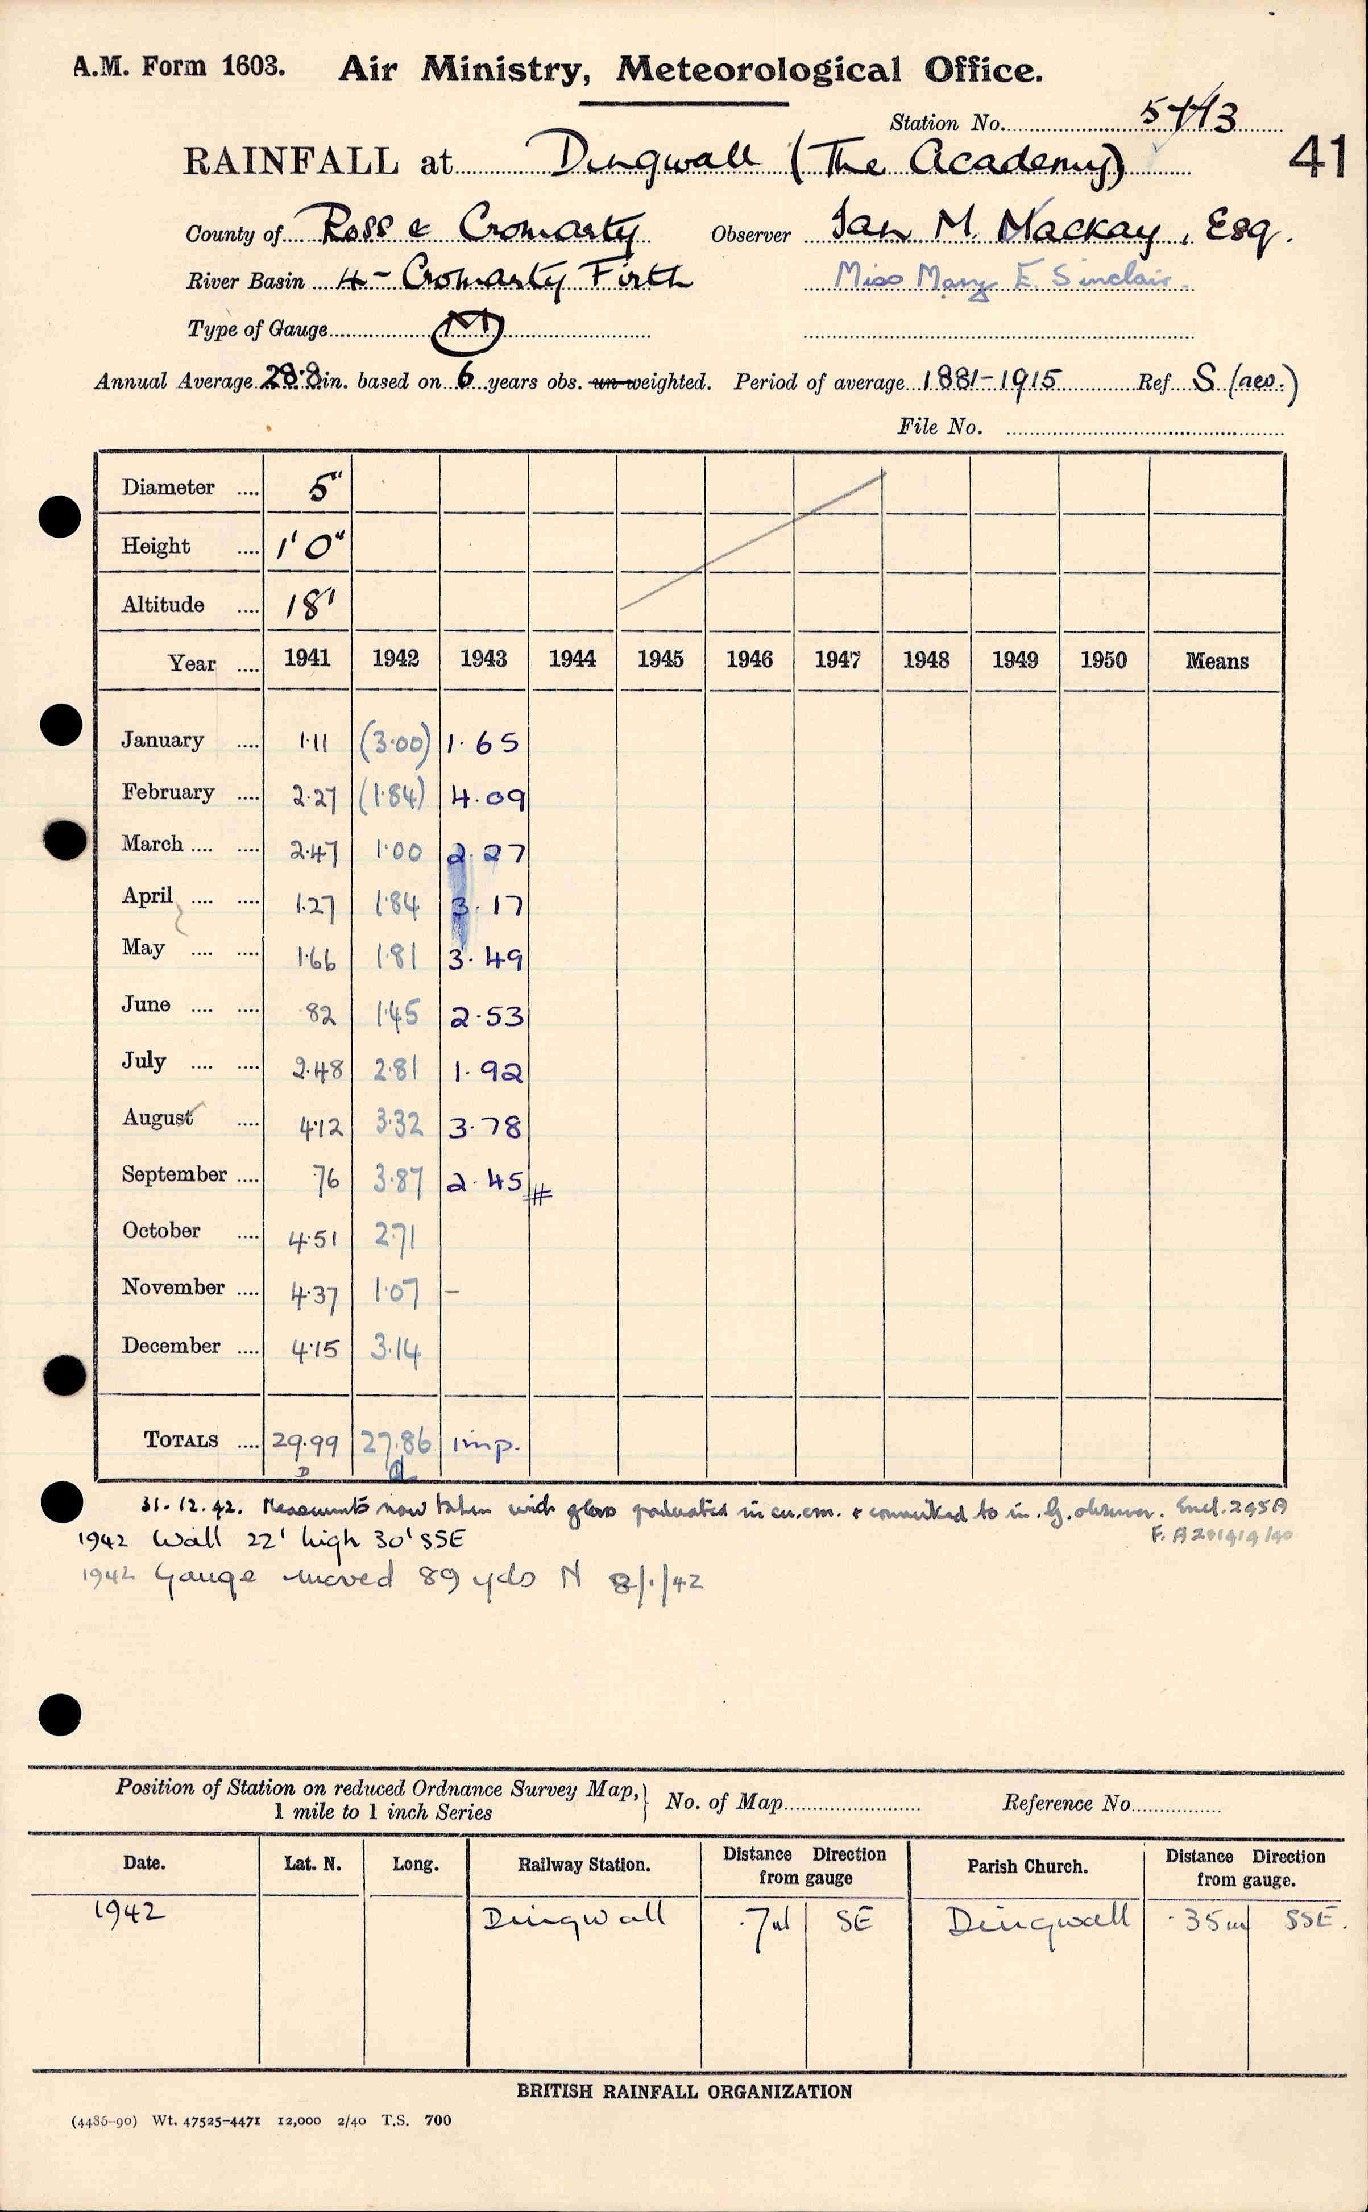 A.M. Form 1603. Air Ministry, Meteorological Office.
Station No.
RAINFALL at Dingwall (The Academy) 41
County of Ross & Cromarty Observer Ian M. Mackay, Esq.
River Basin 4 - Cromarty Firth Miss Mary E. Sinclair.
Type of Gauge M
Annual Average 28.8 in. based on 6 years obs. un-weighted. Period of average 1881-1915 Ref. S (aes.)
File No.
Diameter .... 5"
Height .... 1' 0"
Altitude .... 18'
Year .... 1941 1942 1943 1944 1945 1946 1947 1948 1949 1950 Means
January .... 1.11 (3.00) 1.65
February .... 2.27 (1.84) 4.09
March .... .... 2.47 1.00 2.27
April .... .... 1.27 1.84 3.17
May .... .... 1.66 1.81 3.49
June .... .... .82 1.45 2.53
July .... .... 2.48 2.81 1.92
August .... 4.12 3.32 3.78
September .... .76 3.87 2.45 #
October .... 4.51 2.71
November .... 4.37 1.07 -
December .... 4.15 3.14
TOTALS .... 29.99 27.86 imp.
31.12.42. Measurements now taken with glass graduated in cu.cm. & converted to in. by observer. Encl. 245A
1942 Wall 22' high 30' SSE
1942 Gauge moved 89 yds N 8/1/42
Position of Station on reduced Ordnance Survey Map,} No. of Map Reference No
1 mile to 1 inch Series
Date. Lat. N. Long. Railway Station. Distance Direction from gauge Parish Church. Distance Direction from gauge.
1942 Dingwall .7 ml SE Dingwall .35 ml SSE.
BRITISH RAINFALL ORGANIZATION
(4485-90) Wt. 47525-4471 12,000 2/40 T.S. 700